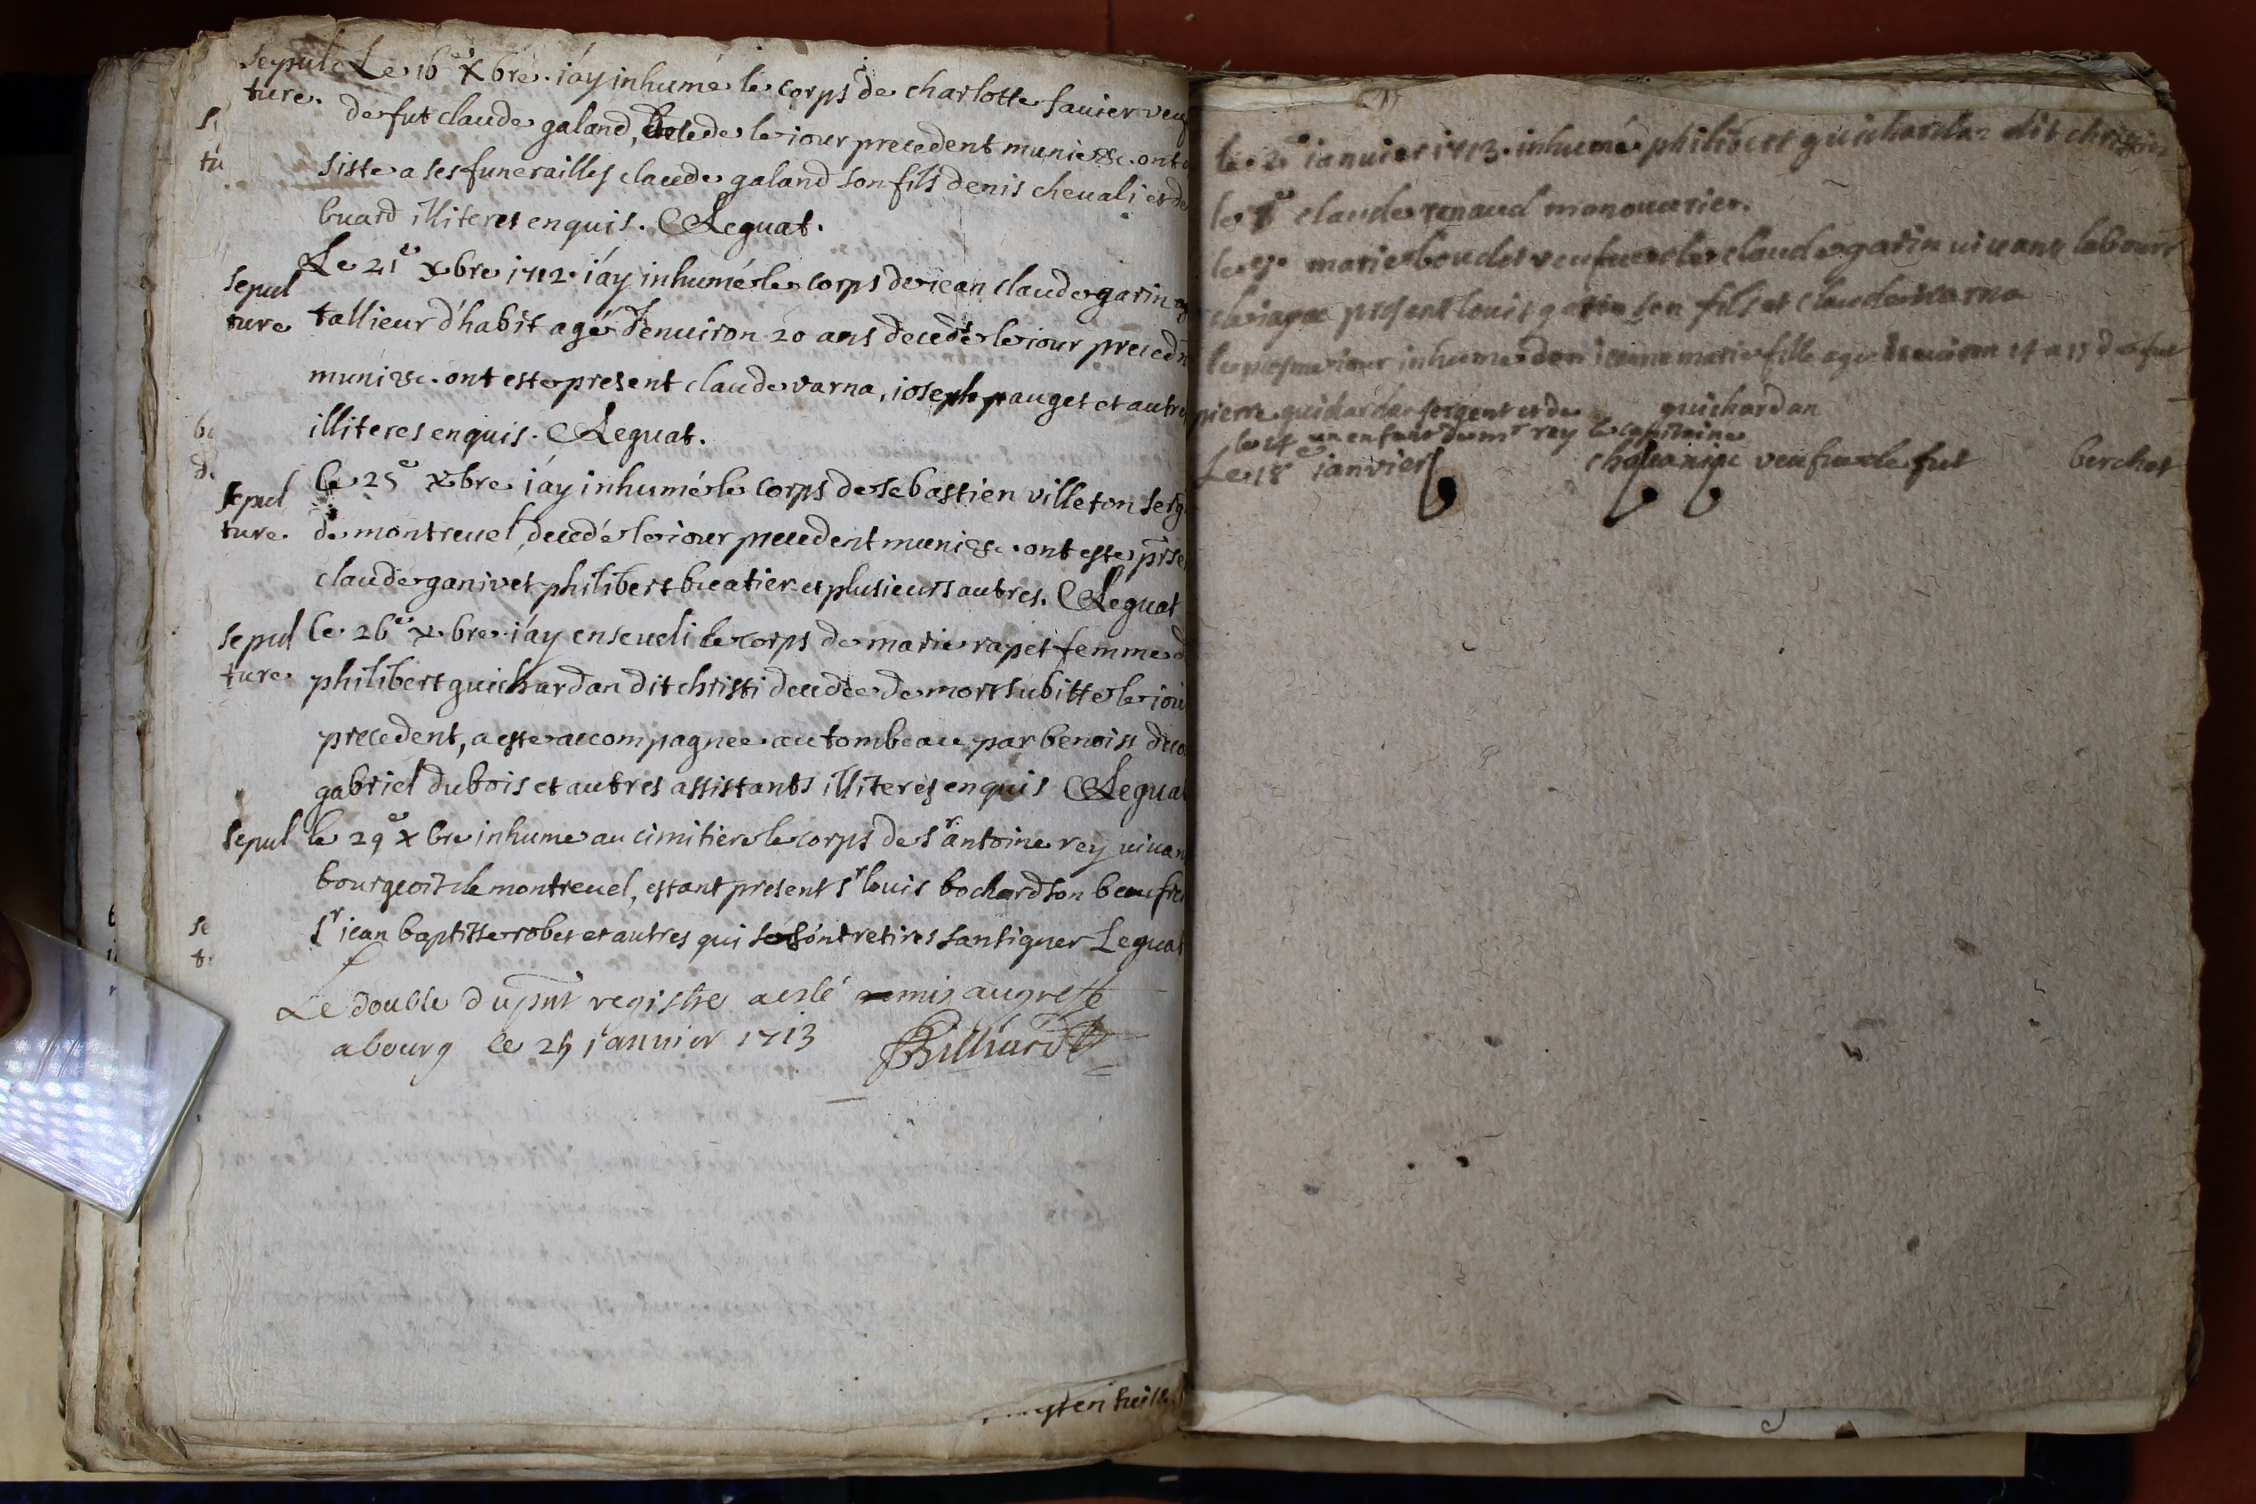 sepul Le 16e xbre iay inhumé le corps de charlotte fauier veuf
ture. de fut claude galand, decedé le iour precedent munie &c. ont
siste a ses funerailles claude galand son fils denis cheuali et de
buard illiteres enquis. Leguat.
Le 21e xbre 1712 iay inhumé le corps de iean claude garin
sepul
ture tallieur d'habit agé d'enuiron 20 ans decedé le iour preced
muni &c. ont este present claude varna, ioseph pauget et autre
illiteres enquis. Leguat.
le 25e xbre iay inhumé le corps de sebastien villeton
sepul
ture. de montreuel, decedé le iour precedent muni &c. ont este
claude ganivet philibert buatier et plusieurs autres. Leguat
sepul le 26e xbre iay enseueli le corps de marie rapet femme d
ture philibert guichardan dit christi decedee de mort subitte le iou
precedent, a este accompagnee au tombeau par benoist
gabriel dubois et autres assistants illiteres enquis Leguat
sepul le 29e xbre inhume au cimitiere le corps de sr antoine rey uiuan
bourgeois de montreuel, estant present sr louis bochard son beaufre
sr iean baptitte robet et autres qui se sont retires sans signer Leguat
Le double du pnt registre a esté remis au greffe
a bourg le 25 ianuier 1713
le 2e ianuier 1713. inhumé philibert guichardan dit
le claude renaud manouurier.
le marie boudet veufue de claude garin uiuant labour
present louis garin son fils et claude varna
le mesme iour inhumé ieanne marie fille agee d'enuiron 14 a 15 de fut
pierre guichardan sergent et de guichardan
le 14e un enfant de mr rey le capitaine
Le 18e ianvier veufue de fut berchet